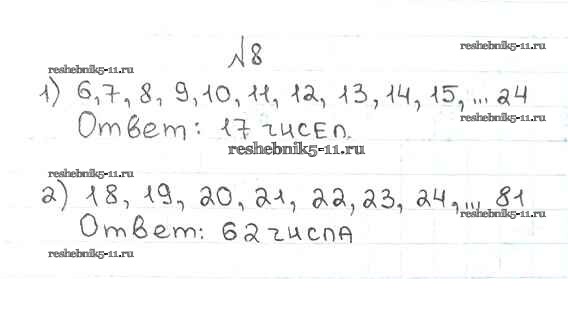 №8
reshebnik5-11.ru
reshebnik5-11.ru
1) 6,7, 8, 9,10, 11, 12, 13, 14, 15, ... 24
reshebnik5-11.ru
Ответ: 17 чисел.
reshebnik5-11.ru
reshebnik5-11.ru
2) 18, 19, 20, 21, 22, 23, 24, ... 81
reshebnik5-11.ru
Ответ: 62 числа
reshebnik5-11.ru